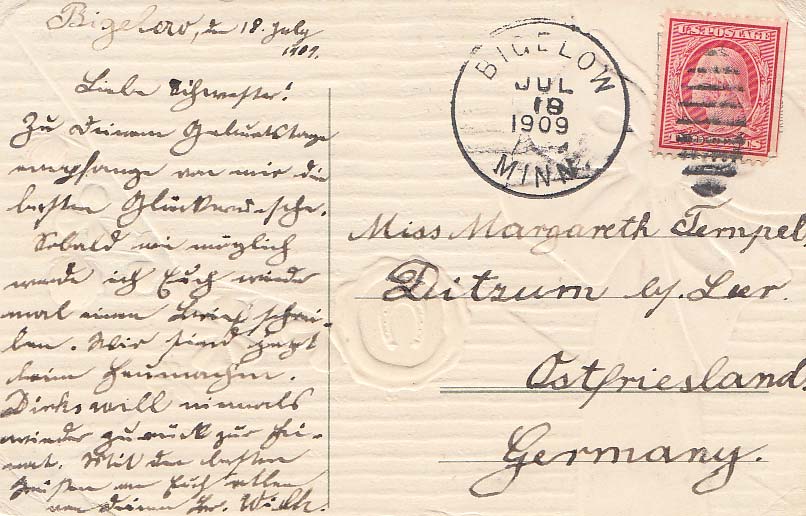 Bigelow, den 18. July
1909.
Liebe Schwester!
Zu deinem Geburtstage
empfange von mir die
besten Glückwünsche.
Sobald wie möglich
werde ich Euch wieder
mal einen Brief schrei-
ben. Wir sind jetzt
beim Heumachen.
Dirks will niemals
wieder zurück zur Hei-
mat. Mit den besten
Grüßen an Euch allen
von deinem Br. Wilh.
BIGELOW
JUL
18
1909
MINN.
U.S. POSTAGE
CENTS
Miss Margareth Tempel,
Ditzum by Leer.
Ostfriesland.
Germany.